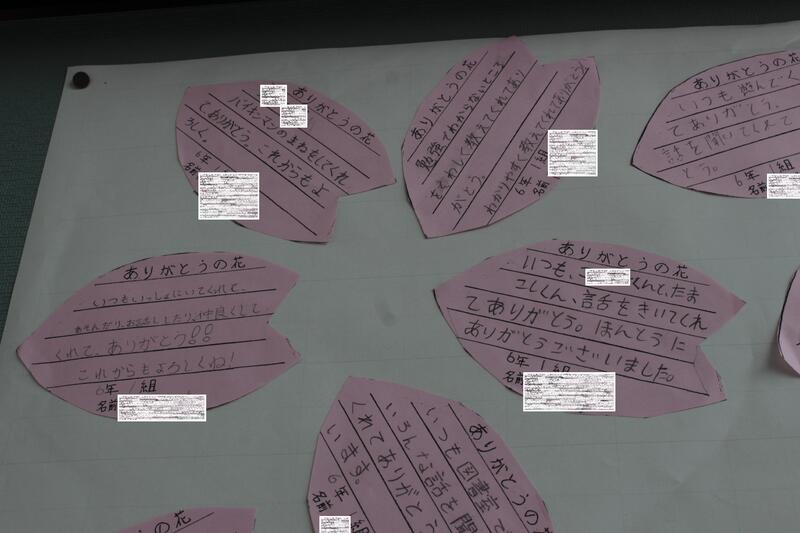 ありがとうの花
バイキングのまねもしてくれ
てありがとう。これからもよ
ろしく。
6年
名前
ありがとうの花
勉強でわからないところ
教えてくれてあり
がとう。
わかりやすく教えてくれてありがとう!
6年 1組
名前
ありがとうの花
いつも遊んでく
てありがとう。
話を聞いてしえて
とう。
6年 1組
名前
ありがとうの花
いつもいっしょにいてくれて、
あそんだり、お話ししたり、仲良くして
くれて、ありがとう!!
これからもよろしくね!
6年 1組
名前
ありがとうの花
いつも、くんと、たま
こしくん、話をきいてくれ
てありがとう。ほんとうに
ありがとうございました。
6年 1組
名前
ありがとうの花
いつも図書室で
いろんな話を聞
くれてありがとう
います。
6年 1組
名前
の花